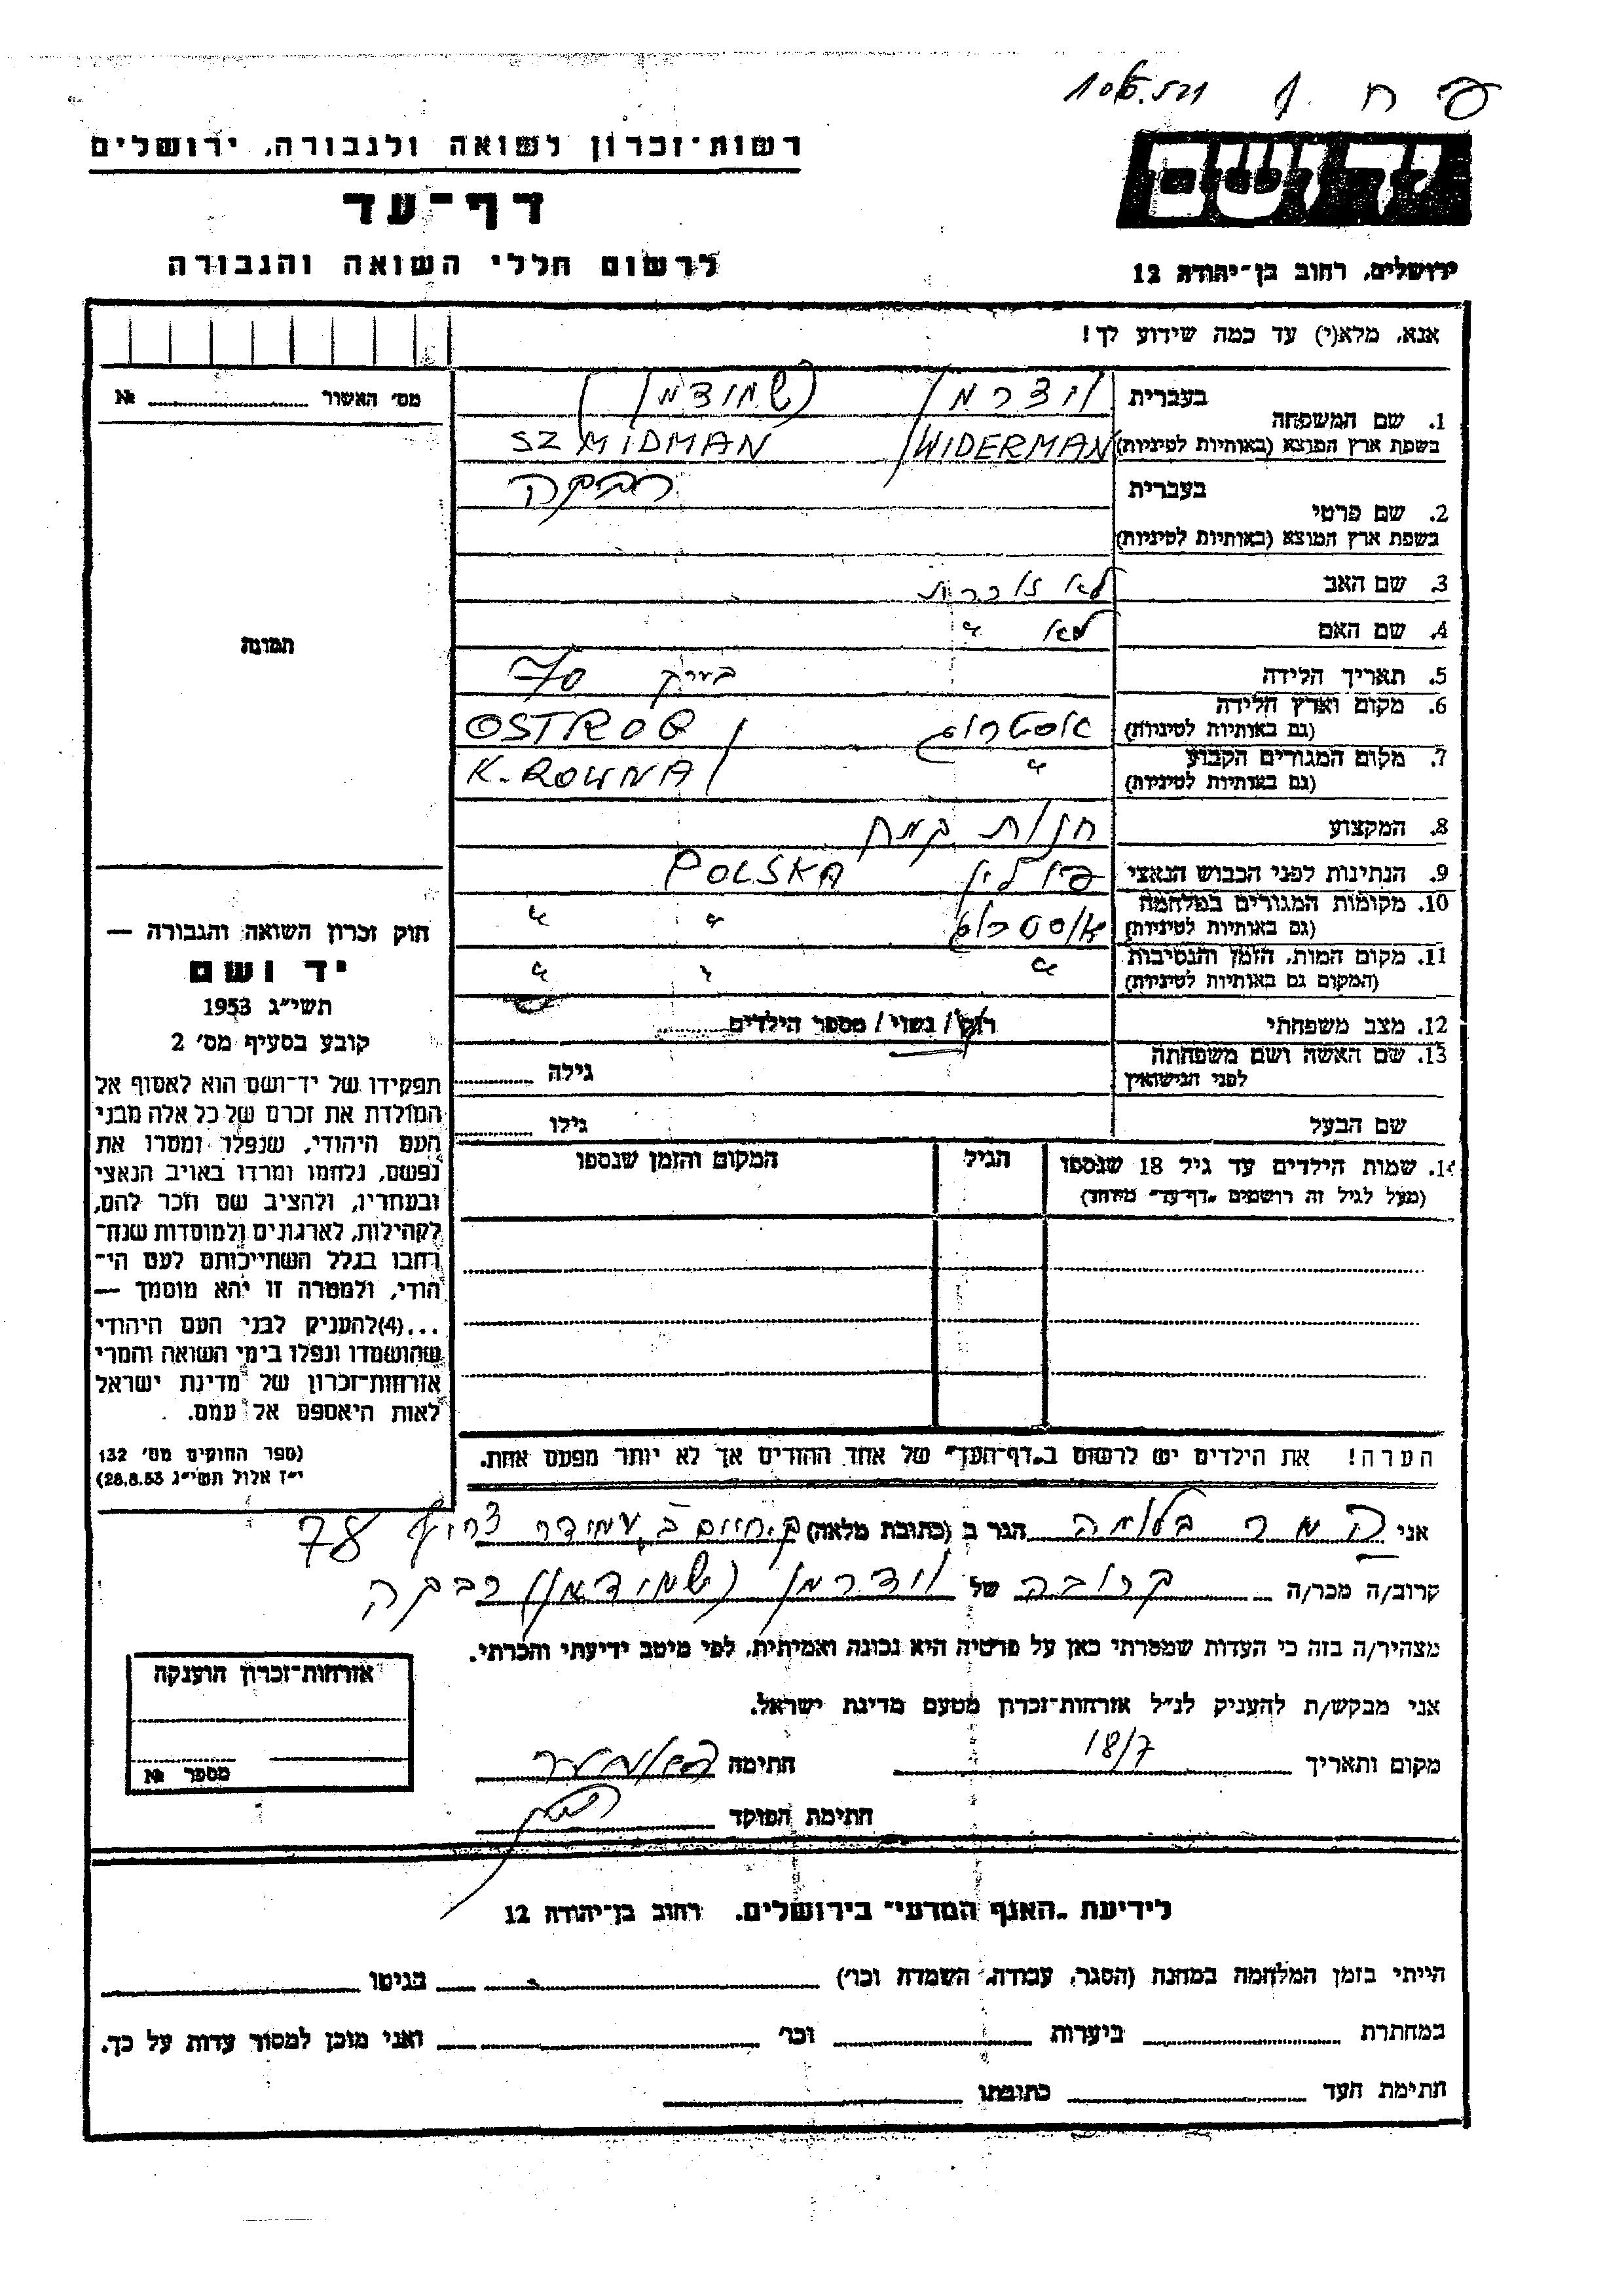 פ ח ו 106.521
יד ושם
רשות־זכרון לשואה ולגבורה, ירושלים
דף־עד
לרשום חללי השואה והגבורה
ירושלים, רחוב בן־יהודה 12
אנא, מלא(י) עד כמה שידוע לך!
מס׳ האשור № ........
1. שם המשפחה
בעברית וידרמן (שמידמן)
בשפת ארץ המוצא (באותיות לטיניות) WIDERMAN / SZMIDMAN
2. שם פרטי
בעברית רבקה
בשפת ארץ המוצא (באותיות לטיניות)
3. שם האב לא זוכרת
4. שם האם לא "
תמונה
5. תאריך הלידה בערך 70
6. מקום וארץ הלידה
(גם באותיות לטיניות) אוסטרוג OSTROG /
7. מקום המגורים הקבוע
(גם באותיות לטיניות) " K. ROWNA /
8. המקצוע חנות קמח
9. הנתינות לפני הכבוש הנאצי פולין POLSKA
10. מקומות המגורים במלחמה
(גם באותיות לטיניות) אוסטרוג " "
11. מקום המות, הזמן והנסיבות
(המקום גם באותיות לטיניות) " " "
12. מצב משפחתי רווק / נשוי / מספר הילדים ........
13. שם האשה ושם משפחתה
לפני הנישואין גילה ........
שם הבעל גילו ........
14. שמות הילדים עד גיל 18 שנספו הגיל המקום והזמן שנספו
(מעל לגיל זה רושמים „דף־עד" מיוחד)
הערה! את הילדים יש לרשום ב„דף־העד" של אחד ההורים אך לא יותר מפעם אחת.
חוק זכרון השואה והגבורה —
יד ושם
תשי״ג 1953
קובע בסעיף מס׳ 2
תפקידו של יד־ושם הוא לאסוף אל
המולדת את זכרם של כל אלה מבני
העם היהודי, שנפלו ומסרו את
נפשם, נלחמו ומרדו באויב הנאצי
ובעוזריו, ולהציב שם וזכר להם,
לקהילות, לארגונים ולמוסדות שנח־
רבו בגלל השתייכותם לעם הי־
הודי, ולמטרה זו יהא מוסמך —
...(4) להעניק לבני העם היהודי
שהושמדו ונפלו בימי השואה והמרי
אזרחות־זכרון של מדינת ישראל
לאות היאספם אל עמם.
(ספר החוקים מס׳ 132
י״ז אלול תשי״ג 28.8.53)
אני המר בלומה הגר ב (כתובת מלאה) ק. חיים ב, עמידר צריף 78
קרוב/ה מכר/ה קרובה של וידרמן (שמידמן) רבקה
מצהיר/ה בזה כי העדות שמסרתי כאן על פרטיה היא נכונה ואמיתית, לפי מיטב ידיעתי והכרתי.
אני מבקש/ת להעניק לנ״ל אזרחות־זכרון מטעם מדינת ישראל.
מקום ותאריך 18/7 חתימה
חתימת הפוקד
אזרחות־זכרון הוענקה
מספר №
לידיעת „האגף המדעי" בירושלים, רחוב בן־יהודה 12
הייתי בזמן המלחמה במחנה (הסגר, עבודה, השמדה וכו׳) בגיטו
במחתרת ביערות וכו׳ ואני מוכן למסור עדות על כך.
חתימת העד כתובתו